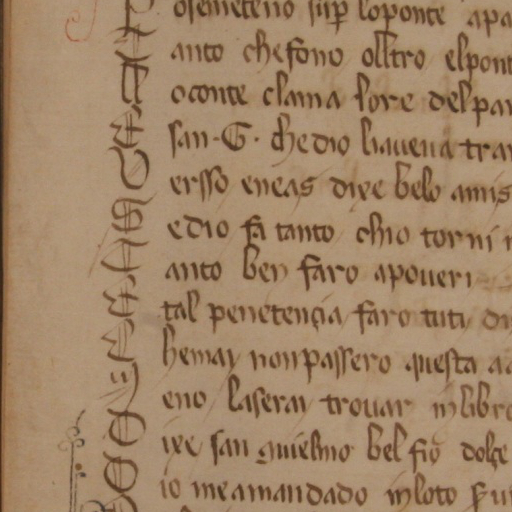 P osemeteno sup loponte apa
T anto che fono olltro elpont
E l conte clama lore delpar
E san · G · che dio liaueua tra
V ersso eneas dixe belo amis
S edio fa tanto chio torni
T anto ben faro apoueri
E tal penetençia faro tuti di
Z hemai non passero questa a
E eno laserai trouar inlibro
D ixe san guielmo bel fio dolçe
D io me amandado inloto